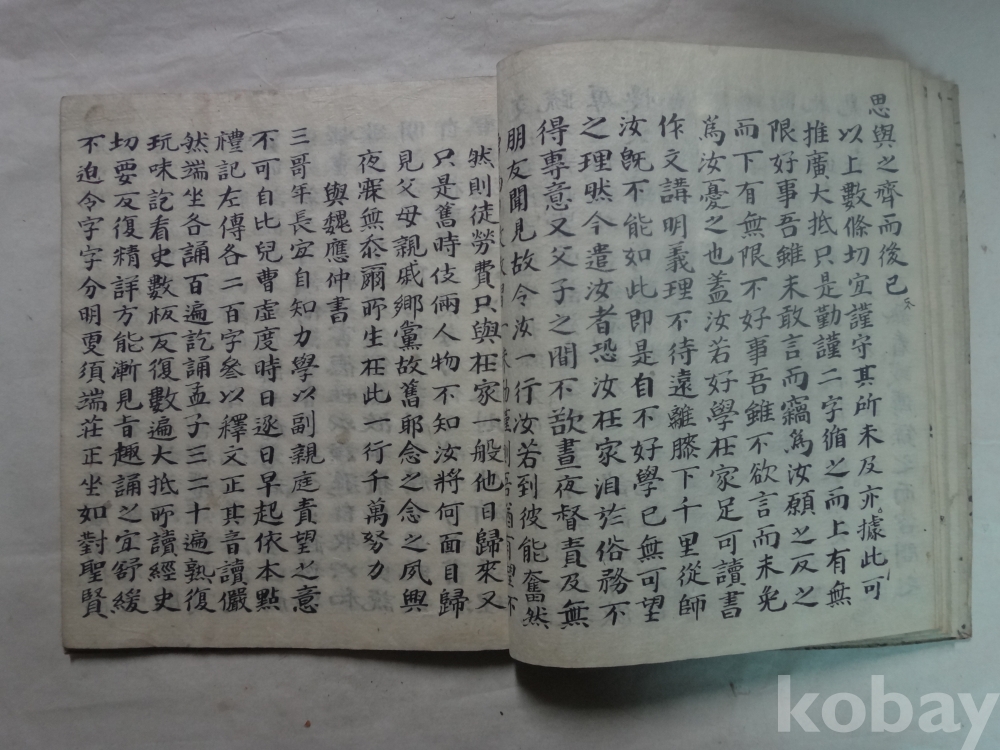 思與之齊而後已
以上數條切宜謹守其所未及亦據此可
推廣大抵只是勤謹二字循之而上有無
限好事吾雖未敢言而竊爲汝願之反之
而下有無限不好事吾雖不欲言而未免
爲汝憂之也盖汝若好學在家足可讀書
作文講明義理不待遠離膝下千里從師
汝旣不能如此即是自不好學已無可望
之理然今遣汝者恐汝在家汨於俗務不
得專意又父子之間不欲晝夜督責及無
朋友聞見故令汝一行汝若到彼能奮然
勤謹則吾猶有望不
然則徒勞費只與在家一般他日歸來又
只是舊時伎倆人物不知汝將何面目歸
見父母親戚鄉黨故舊耶念之念之夙興
夜寐無忝爾所生在此一行千萬努力
與魏應仲書
三哥年長宜自知力學以副親庭責望之意
不可自比兒曹虛度時日逐日早起依本點
禮記左傳各二百字參以釋文正其音讀儼
然端坐各誦百遍訖誦孟子三二十遍熟復
玩味訖看史數板反復數遍大抵所讀經史
切要反復精詳方能漸見旨趣誦之宜舒緩
不迫令字字分明更須端莊正坐如對聖賢
kobay